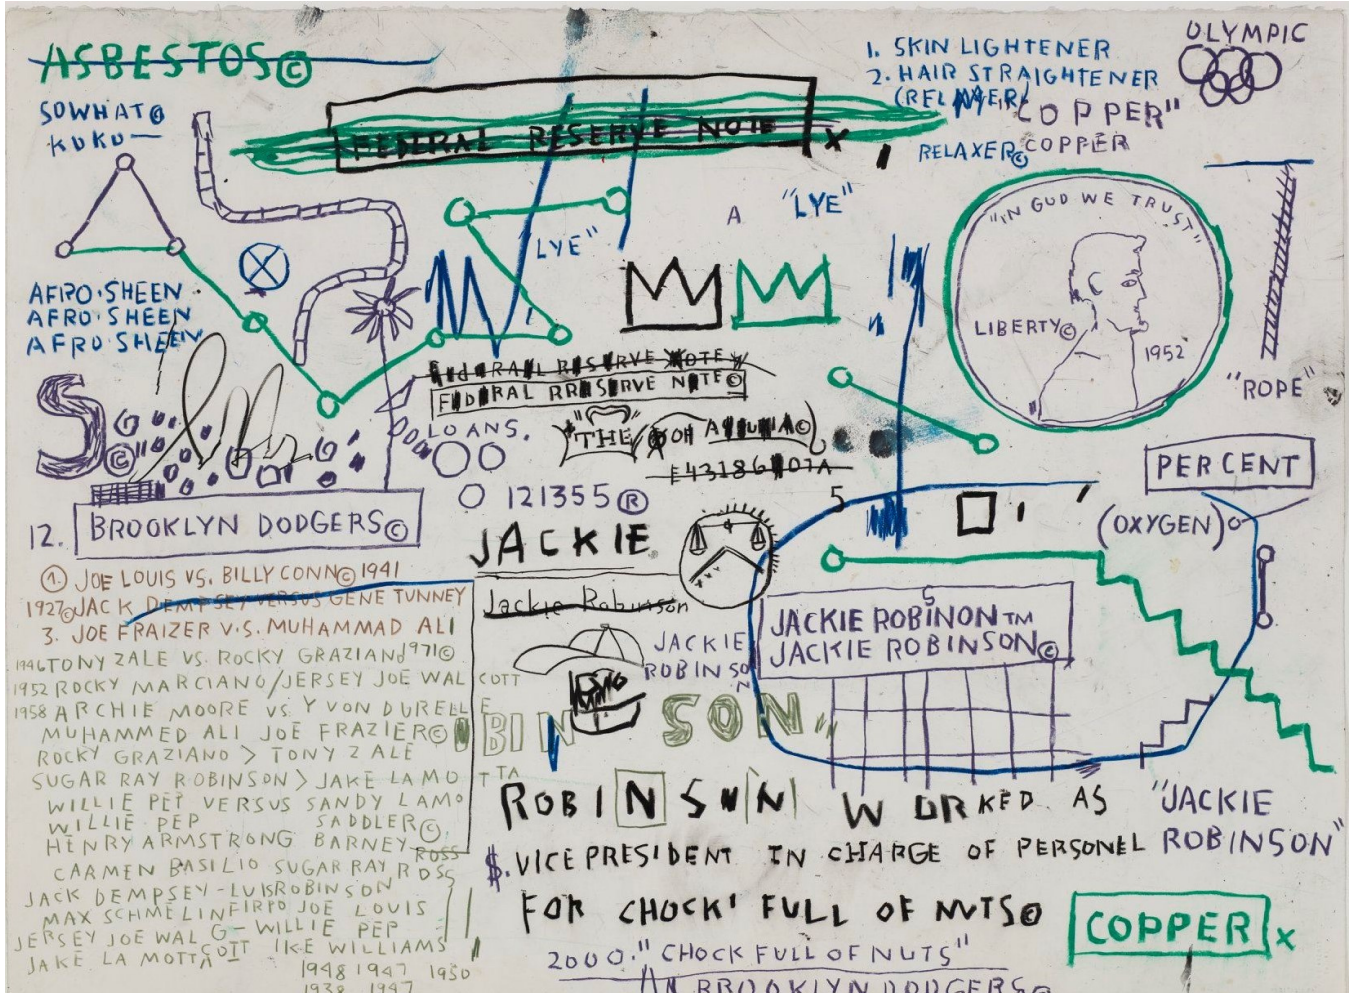 ASBESTOS©
SOWHAT©
KUKU—
FEDERAL RESERVE NOTE X
1. SKIN LIGHTENER
2. HAIR STRAIGHTENER
(RELAXER)
"COPPER"
RELAXER© COPPER
OLYMPIC
A "LYE"
"LYE"
"IN GUD WE TRUST"
LIBERTY©
1952
"ROPE"
AFRO·SHEEN
AFRO·SHEEN
AFRO·SHEEN
S©
FEDERAL RESERVE NOTE
FEDERAL RRSERVE NOTE©
LOANS.
"THE
E43186 07A
121355®
5
PERCENT
(OXYGEN)
12. BROOKLYN DODGERS©
JACKIE
Jackie Robinson
JACKIE
ROBINSON
5
JACKIE ROBINON TM
JACKIE ROBINSON©
1. JOE LOUIS VS. BILLY CONN© 1941
1927© JACK DEMPSEY VERSUS GENE TUNNEY
3. JOE FRAIZER V.S. MUHAMMAD ALI
1946 TONY ZALE VS. ROCKY GRAZIANO 1971©
1952 ROCKY MARCIANO/JERSEY JOE WALCOTT
1958 ARCHIE MOORE VS YVON DURELLE
MUHAMMED ALI JOE FRAZIER©
ROCKY GRAZIANO > TONY ZALE
SUGAR RAY ROBINSON > JAKE LAMOTTA
WILLIE PEP VERSUS SANDY LAMO
WILLIE PEP SADDLER©
HENRY ARMSTRONG BARNEY ROSS
CARMEN BASILIO SUGAR RAY ROSS
JACK DEMPSEY-LUIS ROBINSON
MAX SCHMELIN FIRPO JOE LOUIS
JERSEY JOE WALCOTT G—WILLIE PEP
JAKE LA MOTTA IKE WILLIAMS
1948 1947 1950
1938 1947
BIN SON
ROBINSON WORKED AS "JACKIE
ROBINSON"
$. VICE PRESIDENT IN CHARGE OF PERSONEL
FOR CHOCK' FULL OF NUTS©
2000." CHOCK FULL OF NUTS"
BROOKLYN DODGERS©
COPPER X